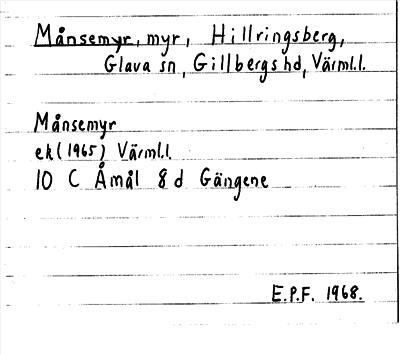 Månsemyr, myr, Hillringsberg,
Glava sn, Gillbergs hd, Värml.l.
Månsemyr
ek (1965) Värml.l.
10 C Åmål 8 d Gängene
E.P.F. 1968.